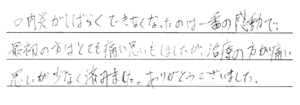 口内炎がしばらくできなくなったのは一番の感動で、
最初の方はとても痛い思いもしましたが、治療の方が痛い
思いが少なく済みました。ありがとうございました。